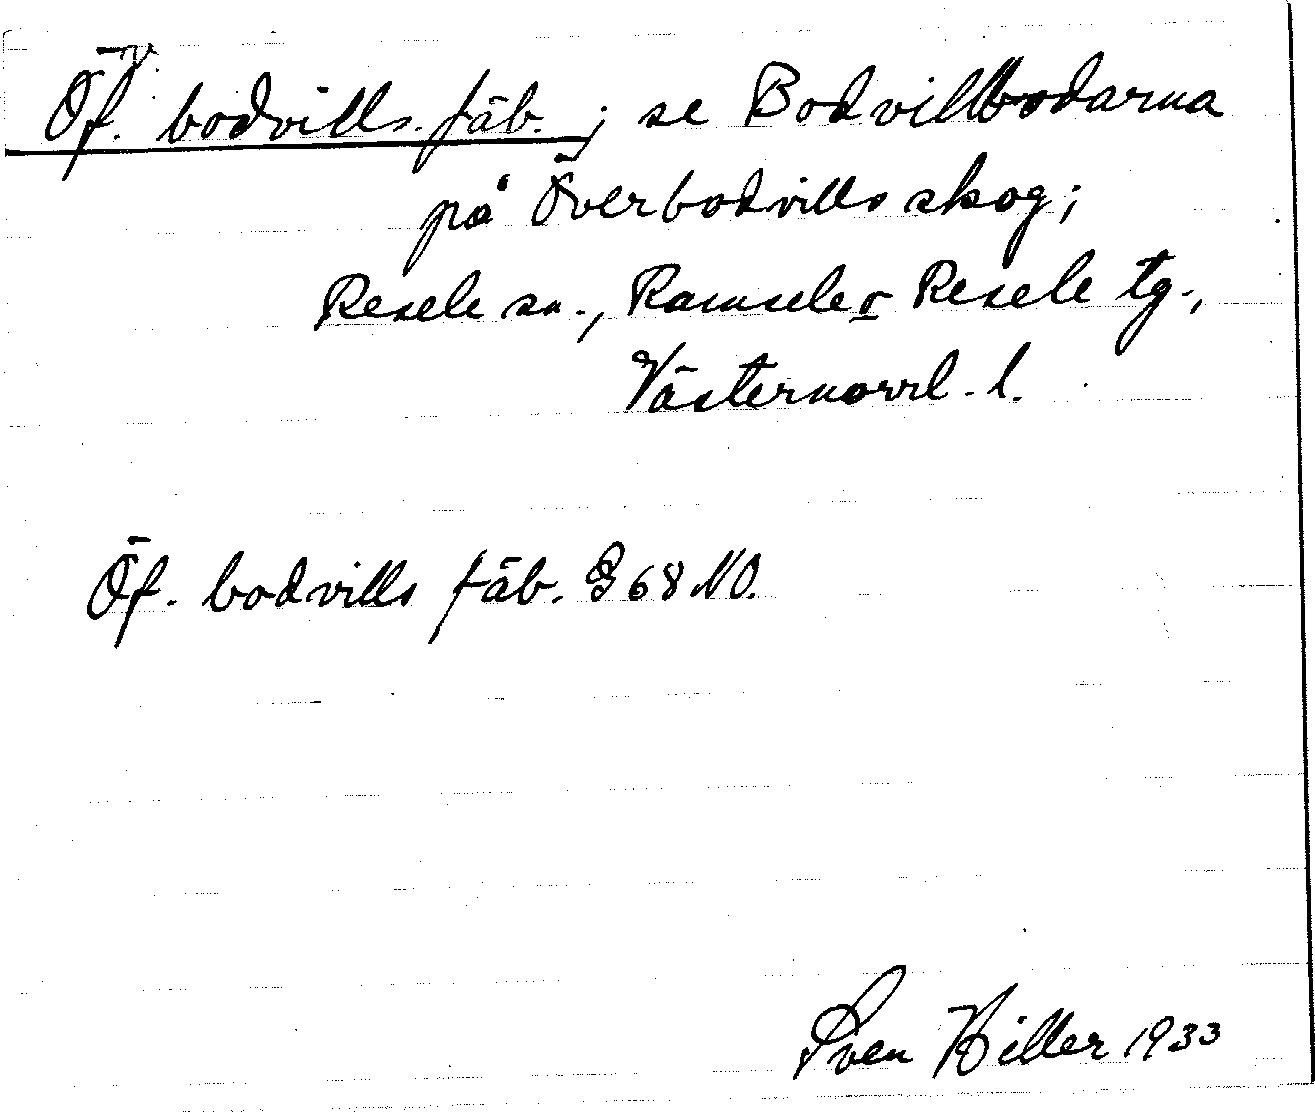 Öf. bodvills. fäb. ; se Bodvillbodarna
på Överbodvills skog;
Resele sn., Ramsele o Resele tg.,
Västernorrl. l.
Öf. bodvills fäb. G 68 NO.
Sven Hiller 1933